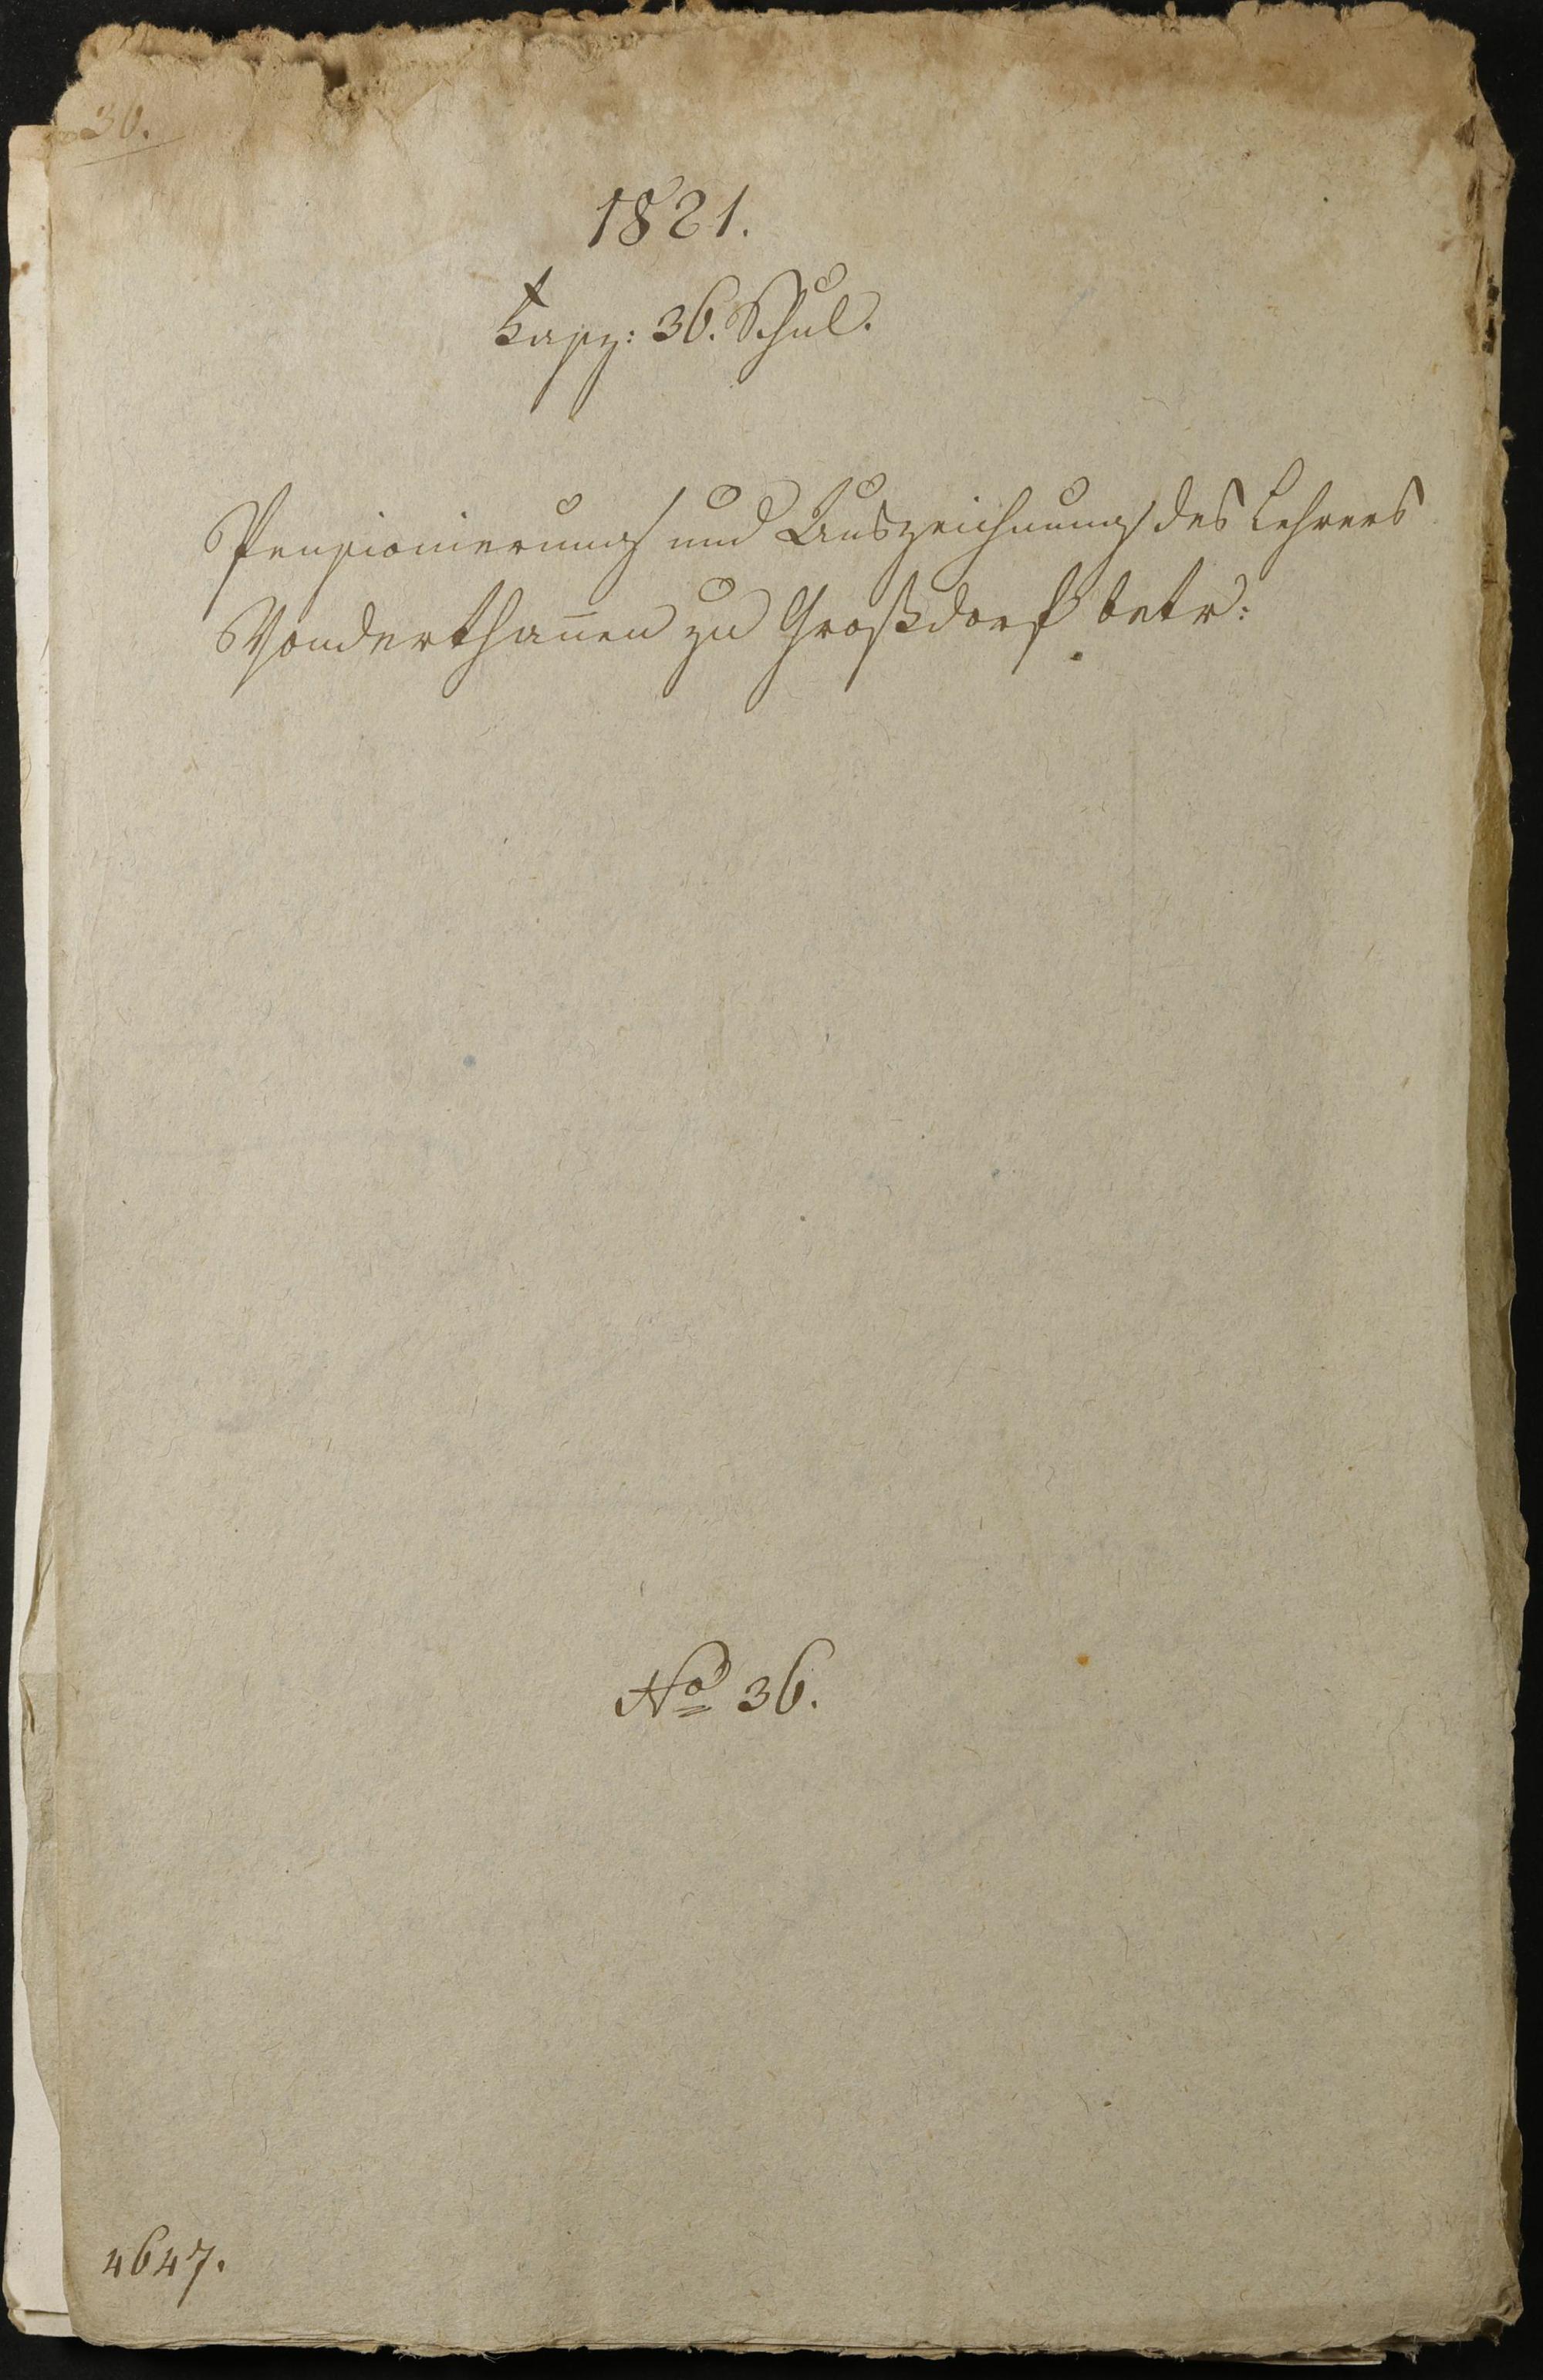 30.
1821.
Fasz: 36. Schul.
Pensionierung und Auszeichnung des Lehrers
Vonderthan̄en zu Großdorf betr:
No 36.
4647.